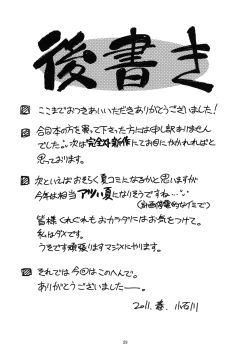 後書き
ここまでおつきあいいただきありがとうございました!
今回本の方を買って下さった方には申し訳ありません
でした。次は完全新作にてお目にかかれればと
思っております。
次といえばおそらく夏コミになるかと思いますが
今年は相当アツい夏になりそうですね…
皆様くれぐれもおカラダにはお気をつけて。
私はダメです。
うそです頑張りますマジメにやります。
それでは今回はこのへんで。
ありがとうございましたー。
2011. 春. 小石川
29